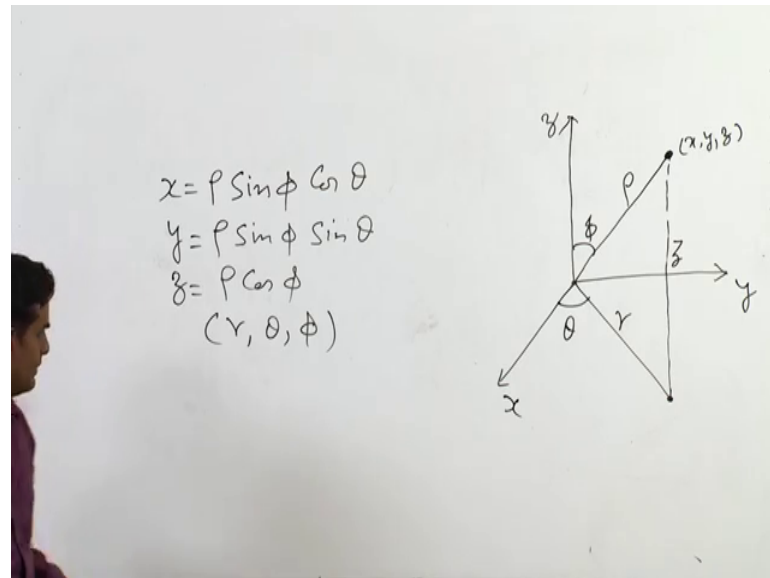 x = ρ Sin ϕ Cos θ
y = ρ Sin ϕ Sin θ
z = ρ Cos ϕ
(r, θ, ϕ)
z
(x, y, z)
ρ
ϕ
z
y
θ
r
x